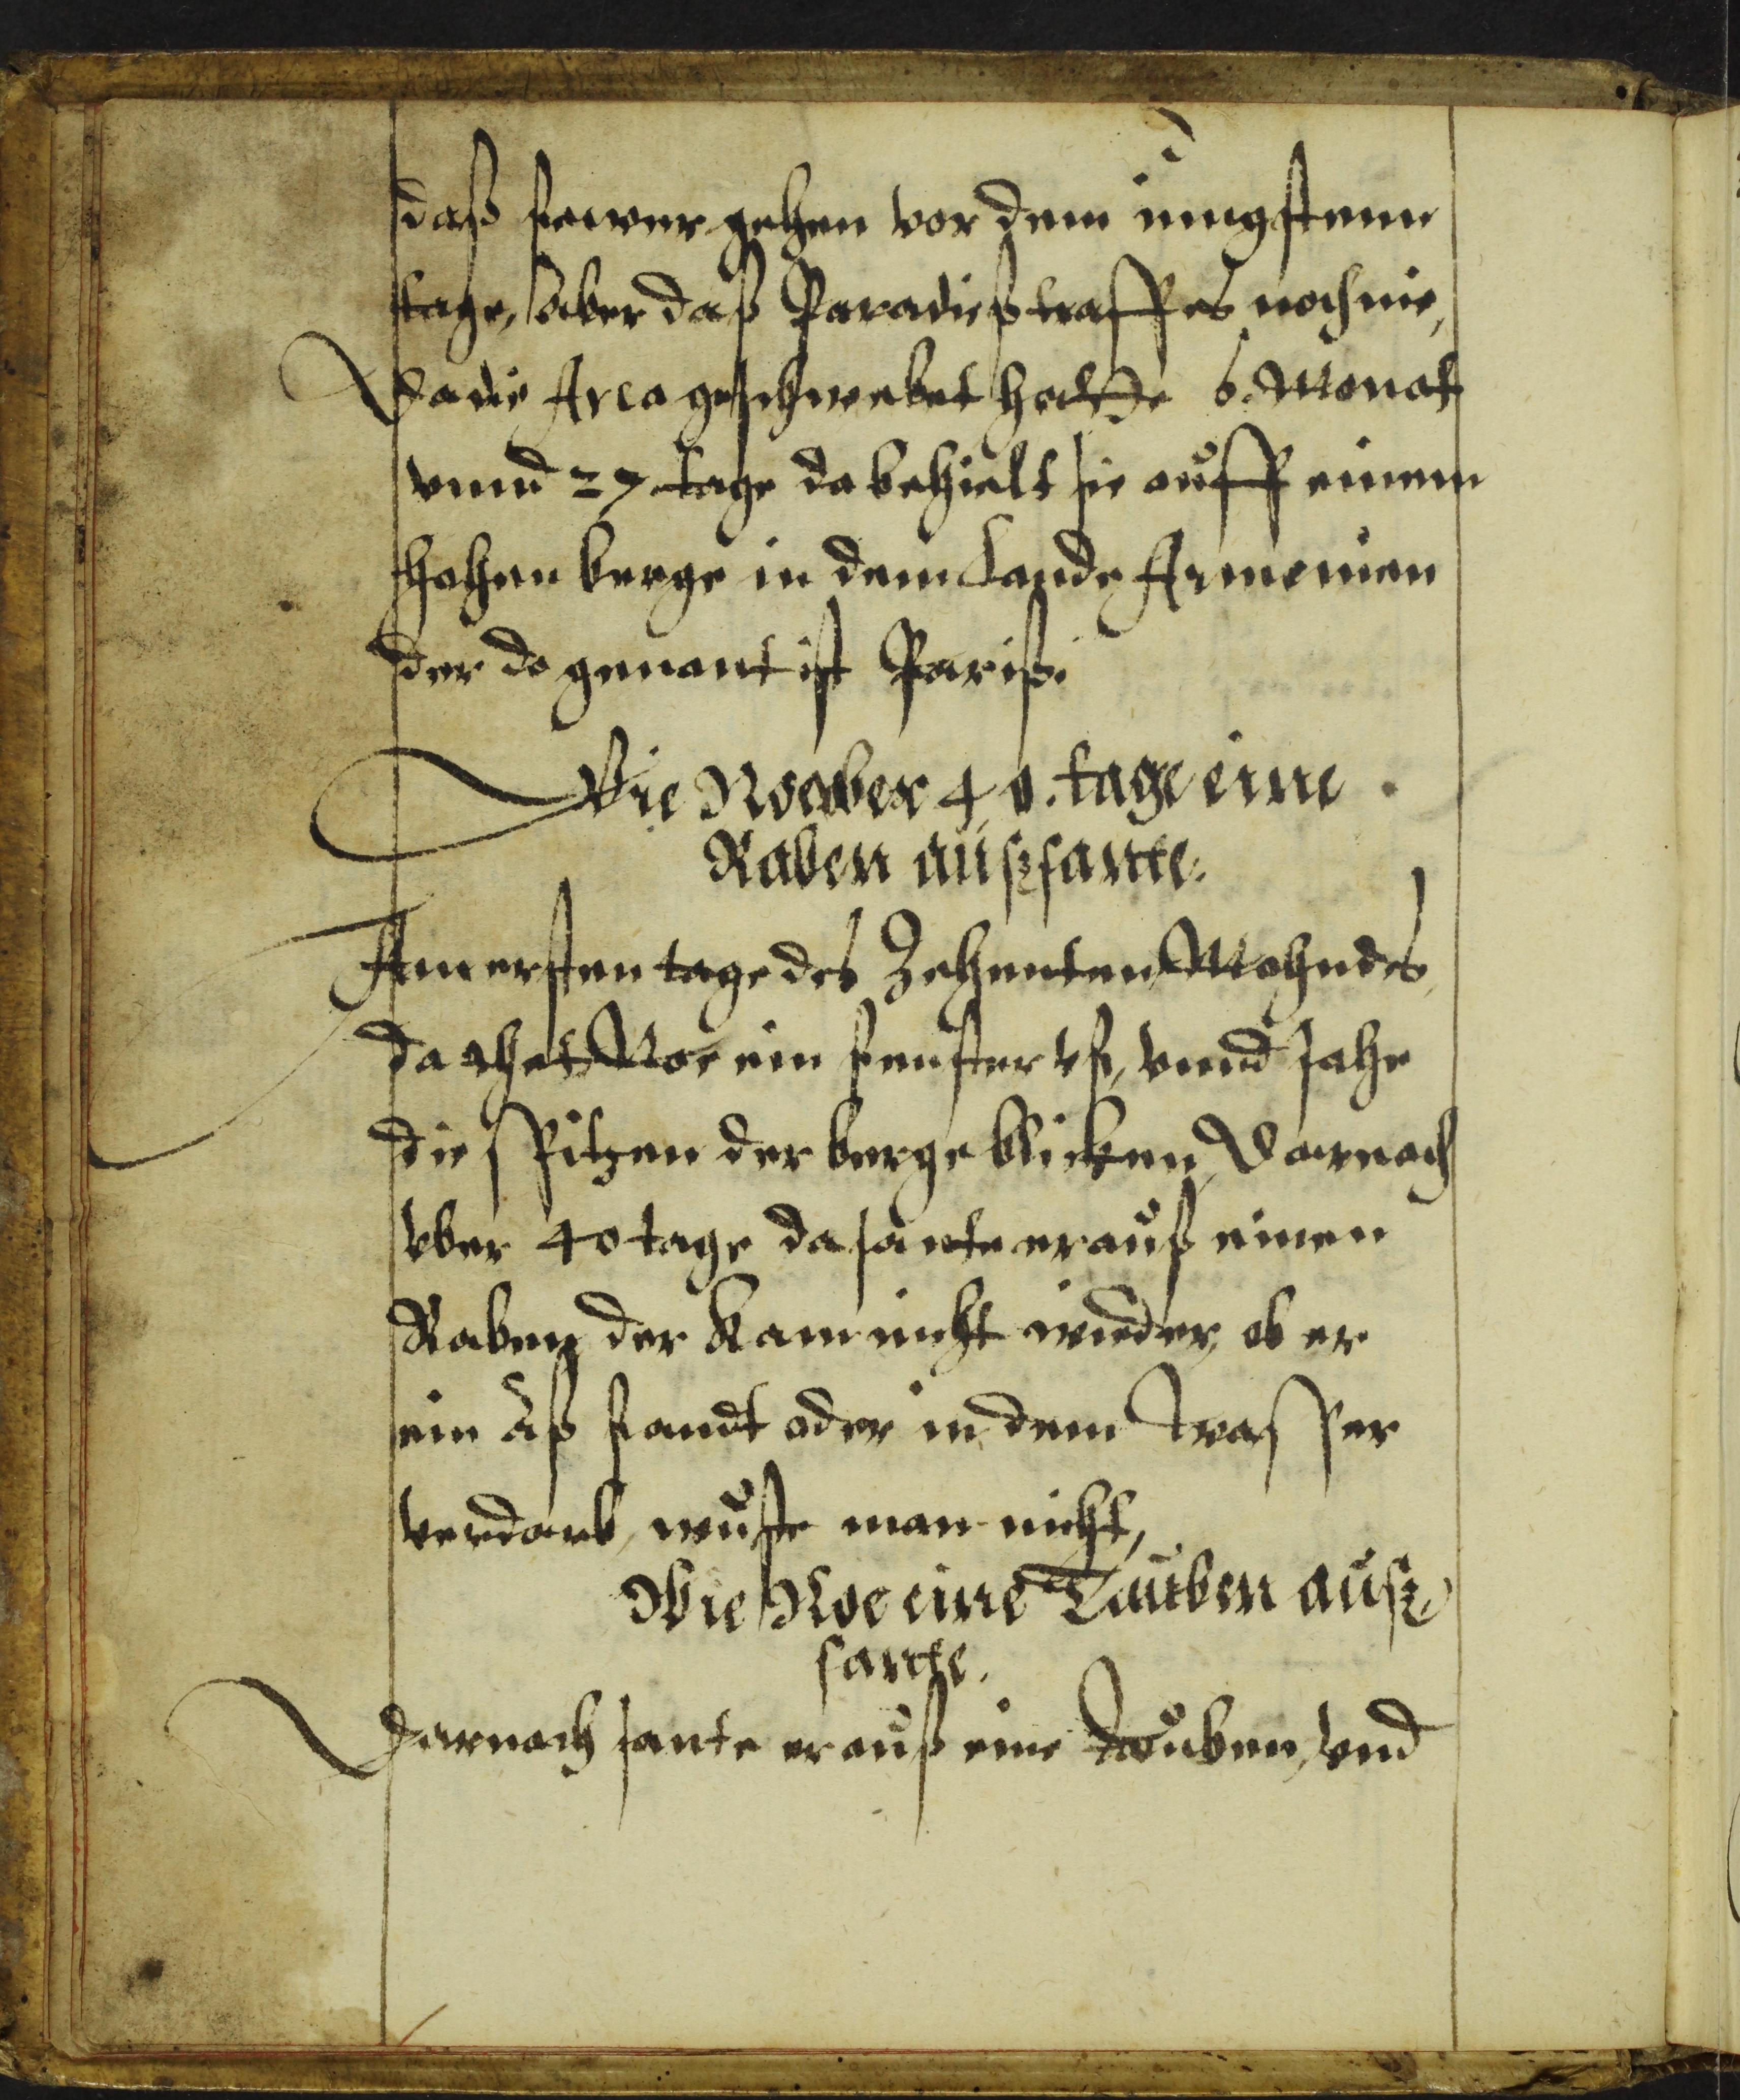 daß fewer gehen vor dem iungstenn
tage, aber daß Paradieß traff es noch nie,
Da die Arca geschwebet hatte 6. Monat
vnnd 27 tage da behielt sie auff einem
hohen berge in dem Lande Armenien
der do genant ist Pariß.
Wie Noe vber 40. tage eine
Raben außsante.
Am ersten tage des Zehenten Mohndes
da thet Noe ein fenster vf, vnnd sahe
die spitzen der berge blicken, Darnach
vber 40 tage da sante er auß einen
Raben der kam nicht wieder, ob er
ein Aß fandt oder in dem wasser
verdarb, wuste man nicht,
Wie Noe eine Tauben auß
sante.
Darnach sante er auß eine tauben, vnd